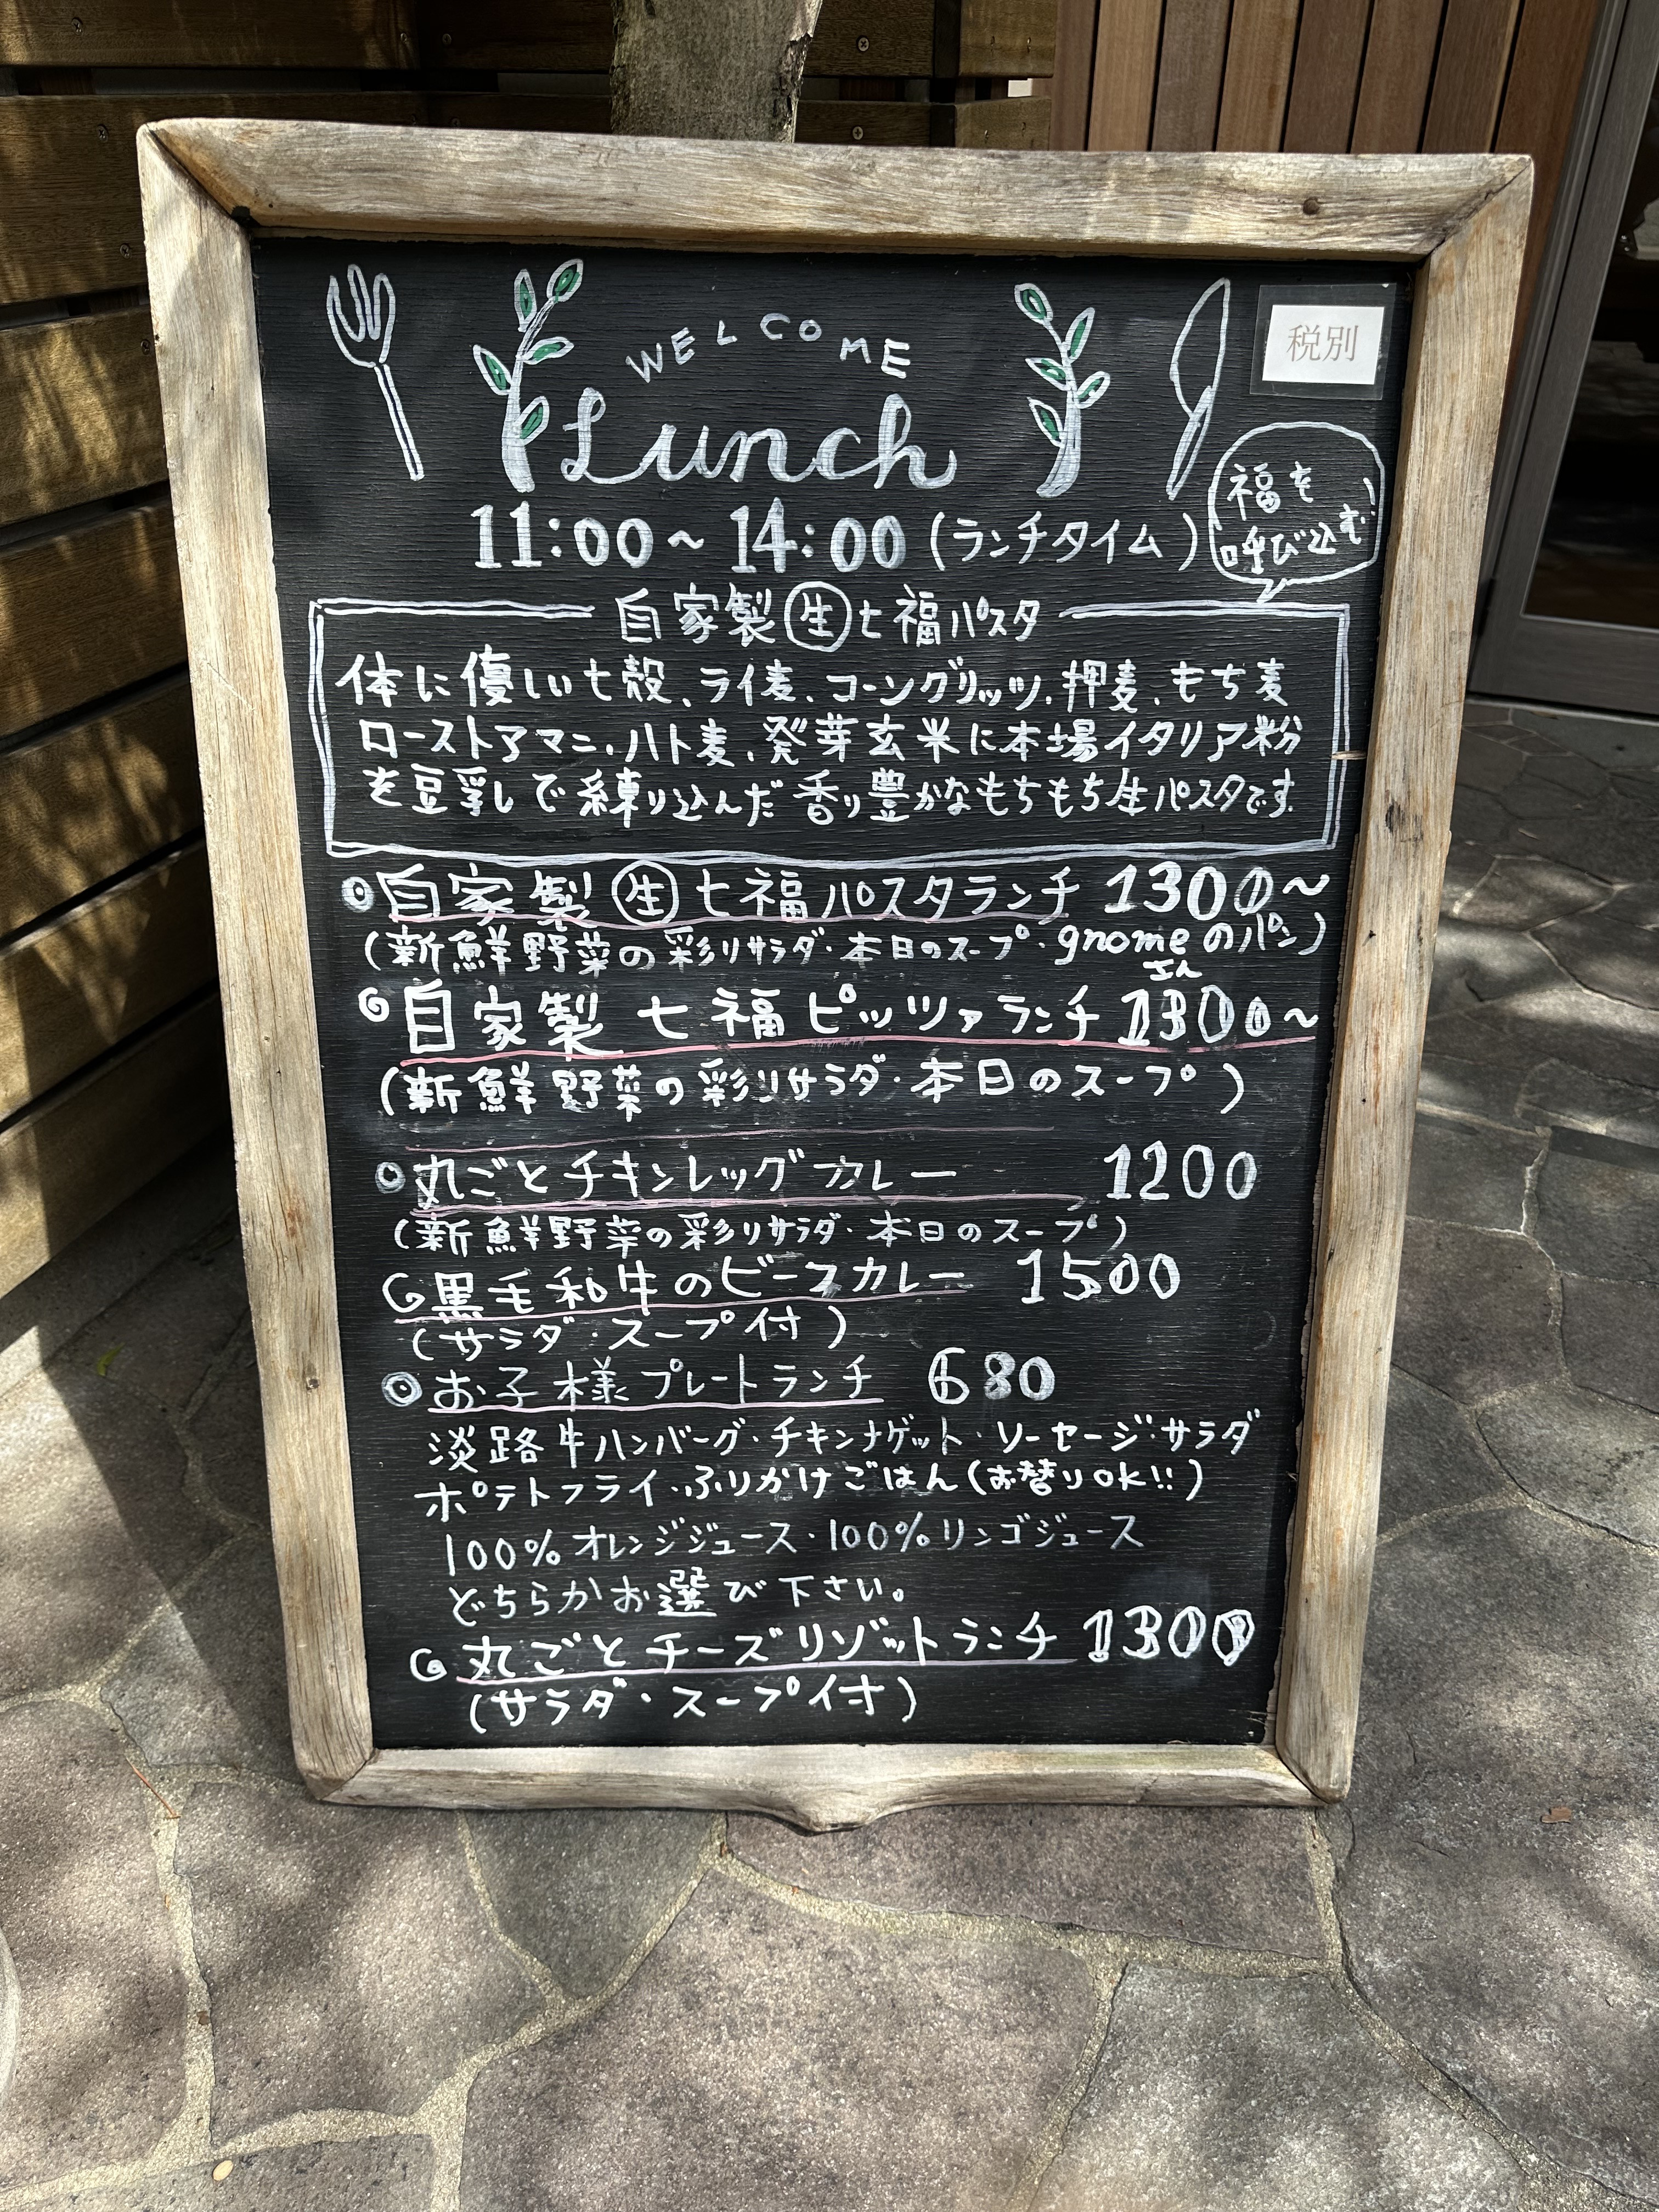 WELCOME
税別
Lunch
11:00~14:00(ランチタイム)
福を
呼び込む
自家製生七福パスタ
体に優しい七穀、ライ麦、コーングリッツ、押麦、もち麦
ローストアマニ、ハト麦、発芽玄米に本場イタリア粉
を豆乳で練り込んだ香り豊かなもちもち生パスタです。
◎自家製生七福パスタランチ 1300~
(新鮮野菜の彩りサラダ・本日のスープ・gnomeさんのパン)
自家製 七福ピッツァランチ 1300~
(新鮮野菜の彩りサラダ・本日のスープ)
◎丸ごとチキンレッグカレー 1200
(新鮮野菜の彩りサラダ・本日のスープ)
黒毛和牛のビーフカレー 1500
(サラダ・スープ付)
◎お子様プレートランチ 680
淡路牛ハンバーグ・チキンナゲット・ソーセージ・サラダ
ポテトフライ・ふりかけごはん(お替りok!!)
100%オレンジジュース・100%リンゴジュース
どちらかお選び下さい。
丸ごとチーズリゾットランチ 1300
(サラダ・スープ付)